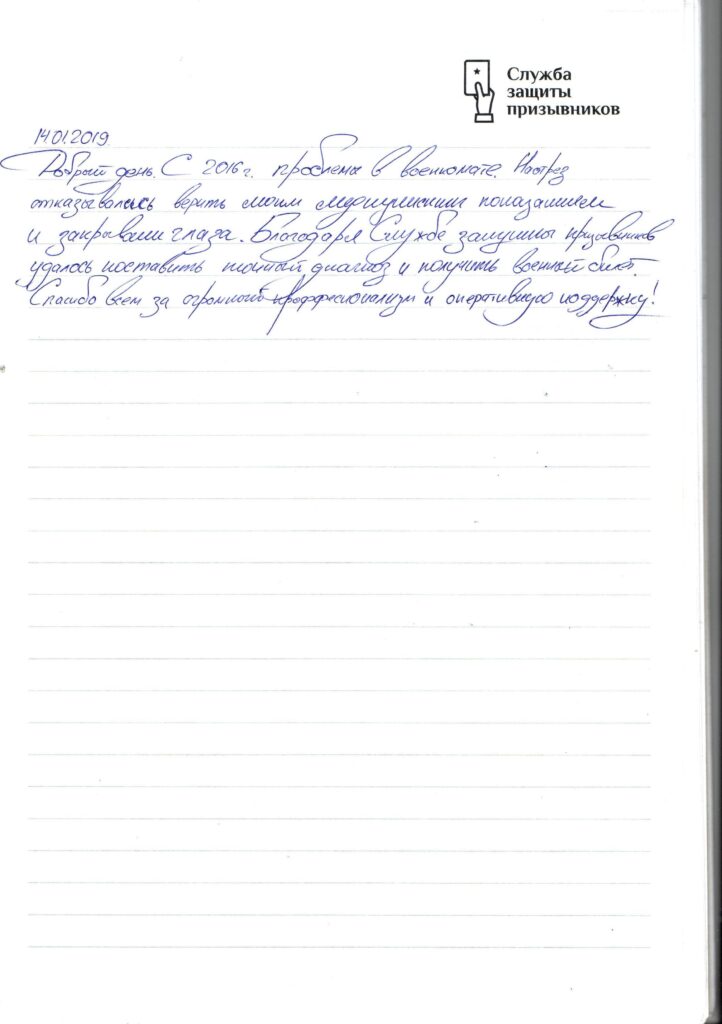 Служба
защиты
призывников
14.01.2019
Добрый день. С 2016 г. проблемы в военкомате. Наотрез
отказывались верить моим медицинским показаниям
и закрывали глаза. Благодаря Службе защиты призывников
удалось поставить точный диагноз и получить военный билет.
Спасибо всем за огромный профессионализм и оперативную поддержку!